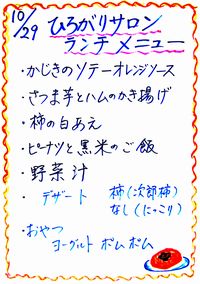 10/29
ひろがりサロン
ランチメニュー
・かじきのソテーオレンジソース
・さつま芋とハムのかき揚げ
・柿の白あえ
・ピーナツと黒米のご飯
・野菜汁
・デザート 柿(次郎柿)
なし(にっこり)
・おやつ
ヨーグルト ポムポム